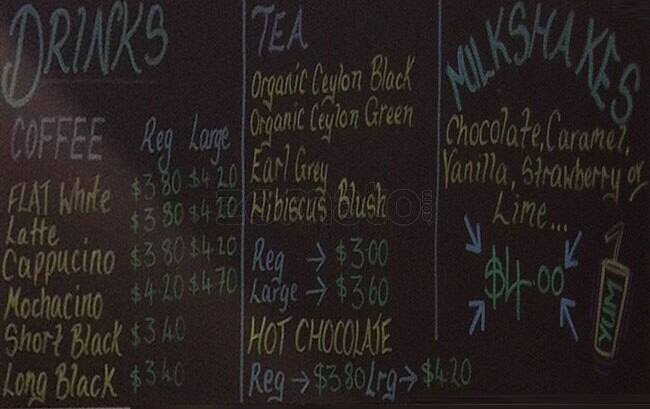 DRINKS
COFFEE Reg Large
FLAT White $3.80 $4.20
Latte $3.80 $4.20
Cappucino $3.80 $4.20
Mochacino $4.20 $4.70
Short Black $3.40
Long Black $3.40
TEA
Organic Ceylon Black
Organic Ceylon Green
Earl Grey
Hibiscus Blush
Reg → $3.00
Large → $3.60
HOT CHOCOLATE
Reg → $3.80 Lrg → $4.20
MILKSHAKES
Chocolate, Caramel,
Vanilla, Strawberry or
Lime...
$4.00
YUM
zomato.com